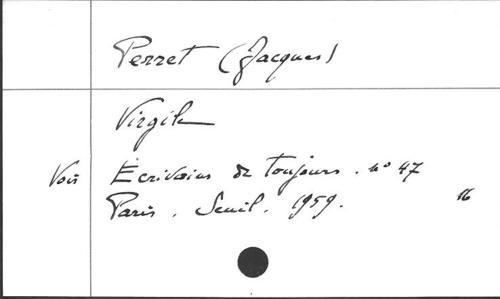 Perret (Jacques)
Virgile
Voir Écrivains de Toujours. n° 47
Paris. Seuil. 1959. 16